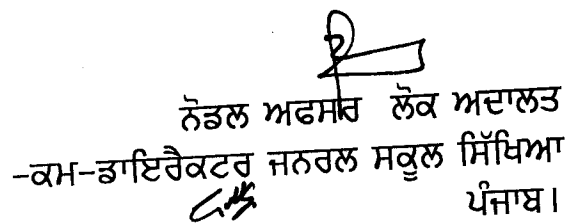 ਨੋਡਲ ਅਫਸਰ ਲੋਕ ਅਦਾਲਤ
-ਕਮ-ਡਾਇਰੈਕਟਰ ਜਨਰਲ ਸਕੂਲ ਸਿੱਖਿਆ
ਪੰਜਾਬ।